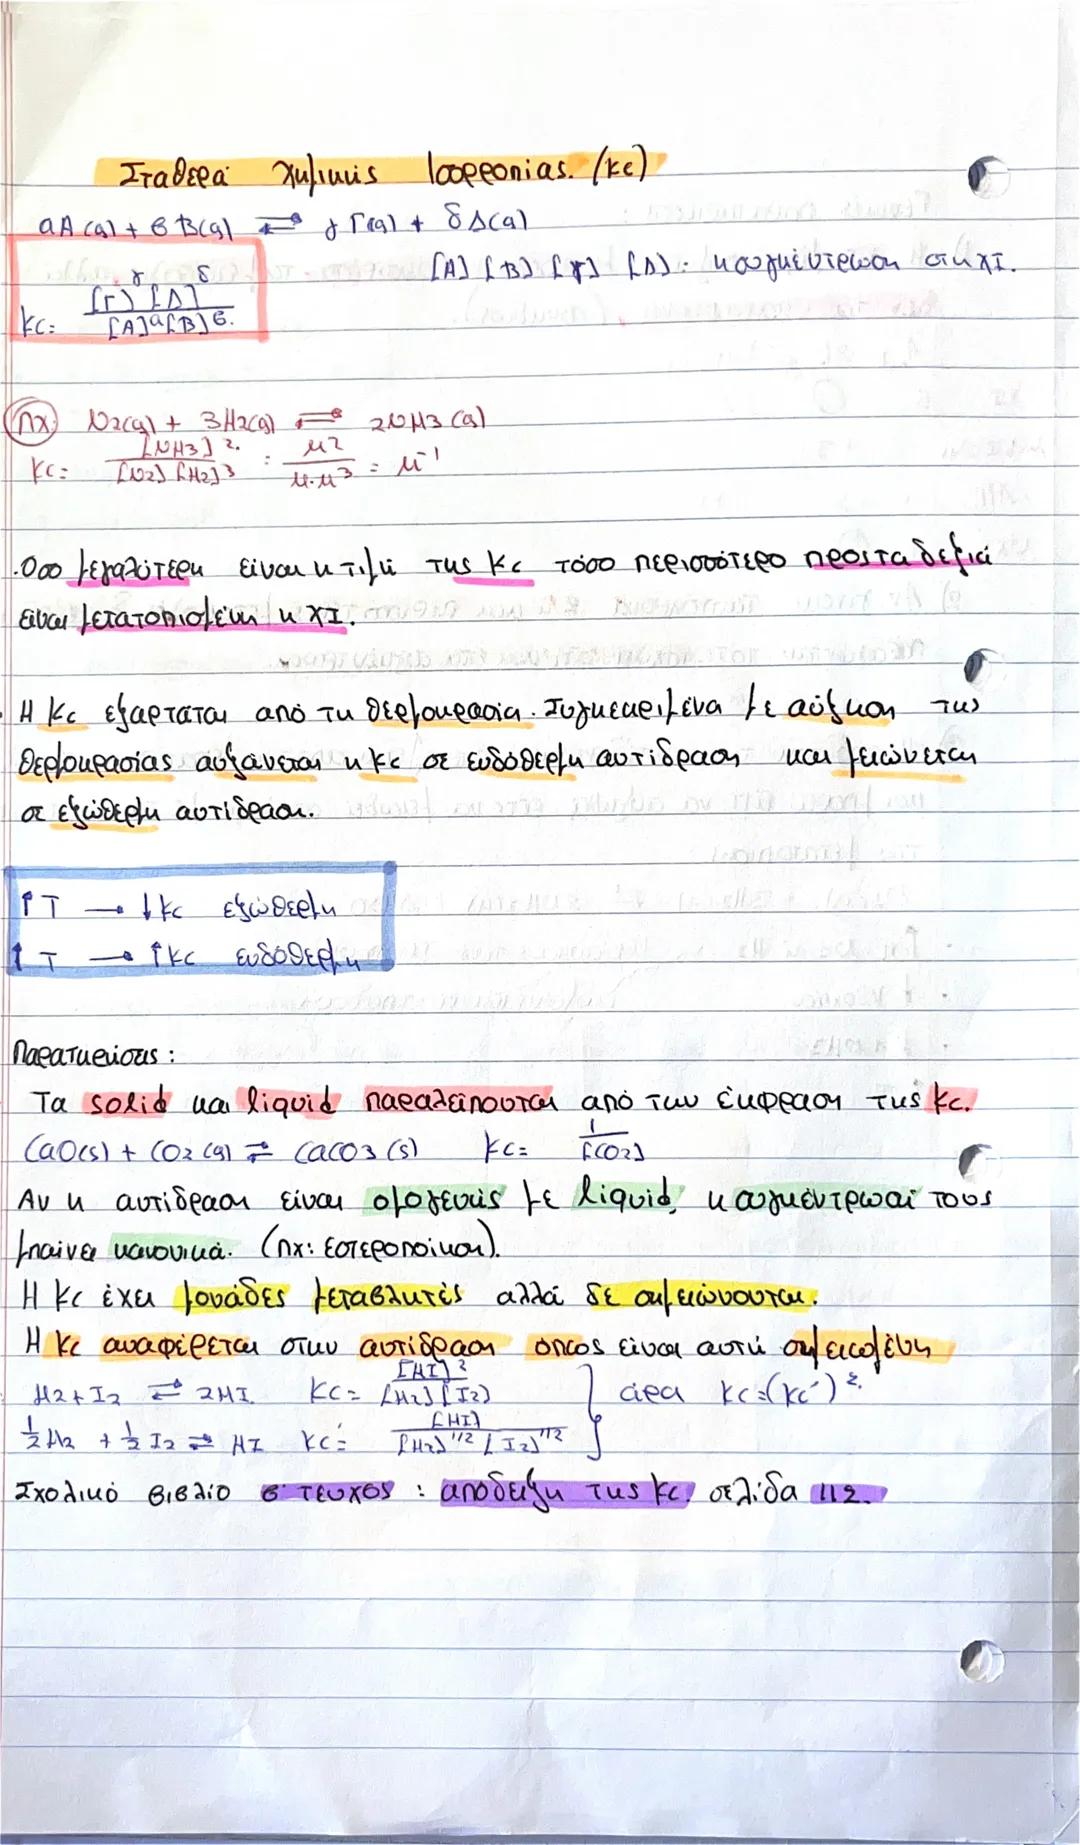 Σταθερά χημικής ισορροπίας. (Kc)
αA(g) + βB(g) ⇌ γΓ(g) + δΔ(g)
[A] [B] [Γ] [Δ]: η συγκέντρωση στη ΧΙ.
Kc= [Γ]^γ [Δ]^δ / [A]^α [B]^β.
πχ N2(g) + 3H2(g) ⇌ 2NH3(g)
Kc= [NH3]^2 / [N2] [H2]^3 = M^2 / M·M^3 = M^-1
·Οσο μεγαλύτερη είναι η τιμή της Kc τόσο περισσότερο προς τα δεξιά
είναι μετατοπισμένη η ΧΙ.
·Η Kc εξαρτάται από τη θερμοκρασία. Συγκεκριμένα με αύξηση της
θερμοκρασίας αυξάνεται η Kc σε ενδόθερμη αντίδραση και μειώνεται
σε εξώθερμη αντίδραση.
↑T → ↓Kc εξώθερμη
↑T → ↑Kc ενδόθερμη
Παρατηρήσεις:
Τα solid και liquid παραλείπονται από την έκφραση της Kc.
CaO(s) + CO2(g) ⇌ CaCO3(s) Kc= 1/[CO2]
Αν η αντίδραση είναι ομογενής με liquid, η συγκέντρωσή τους
μπαίνει κανονικά. (πχ: Εστεροποίηση).
Η Kc έχει μονάδες μεταβλητές αλλά δε σημειώνονται.
Η Kc αναφέρεται στην αντίδραση όπως είναι αυτή σημειωμένη
H2 + I2 ⇌ 2HI Kc= [HI]^2 / [H2] [I2]
½H2 + ½I2 ⇌ HI Kc'= [HI] / [H2]^1/2 [I2]^1/2 } άρα Kc=(Kc')^2.
Σχολικό βιβλίο β' τεύχος: απόδειξη της Kc. σελίδα 112.